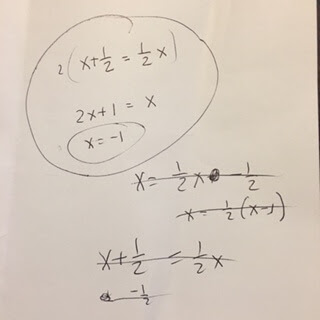 2(x+1/2 = 1/2x)
2x+1 = x
x=-1
x= 1/2x - 1/2
x= 1/2(x-1)
x+1/2 = 1/2x
-1/2